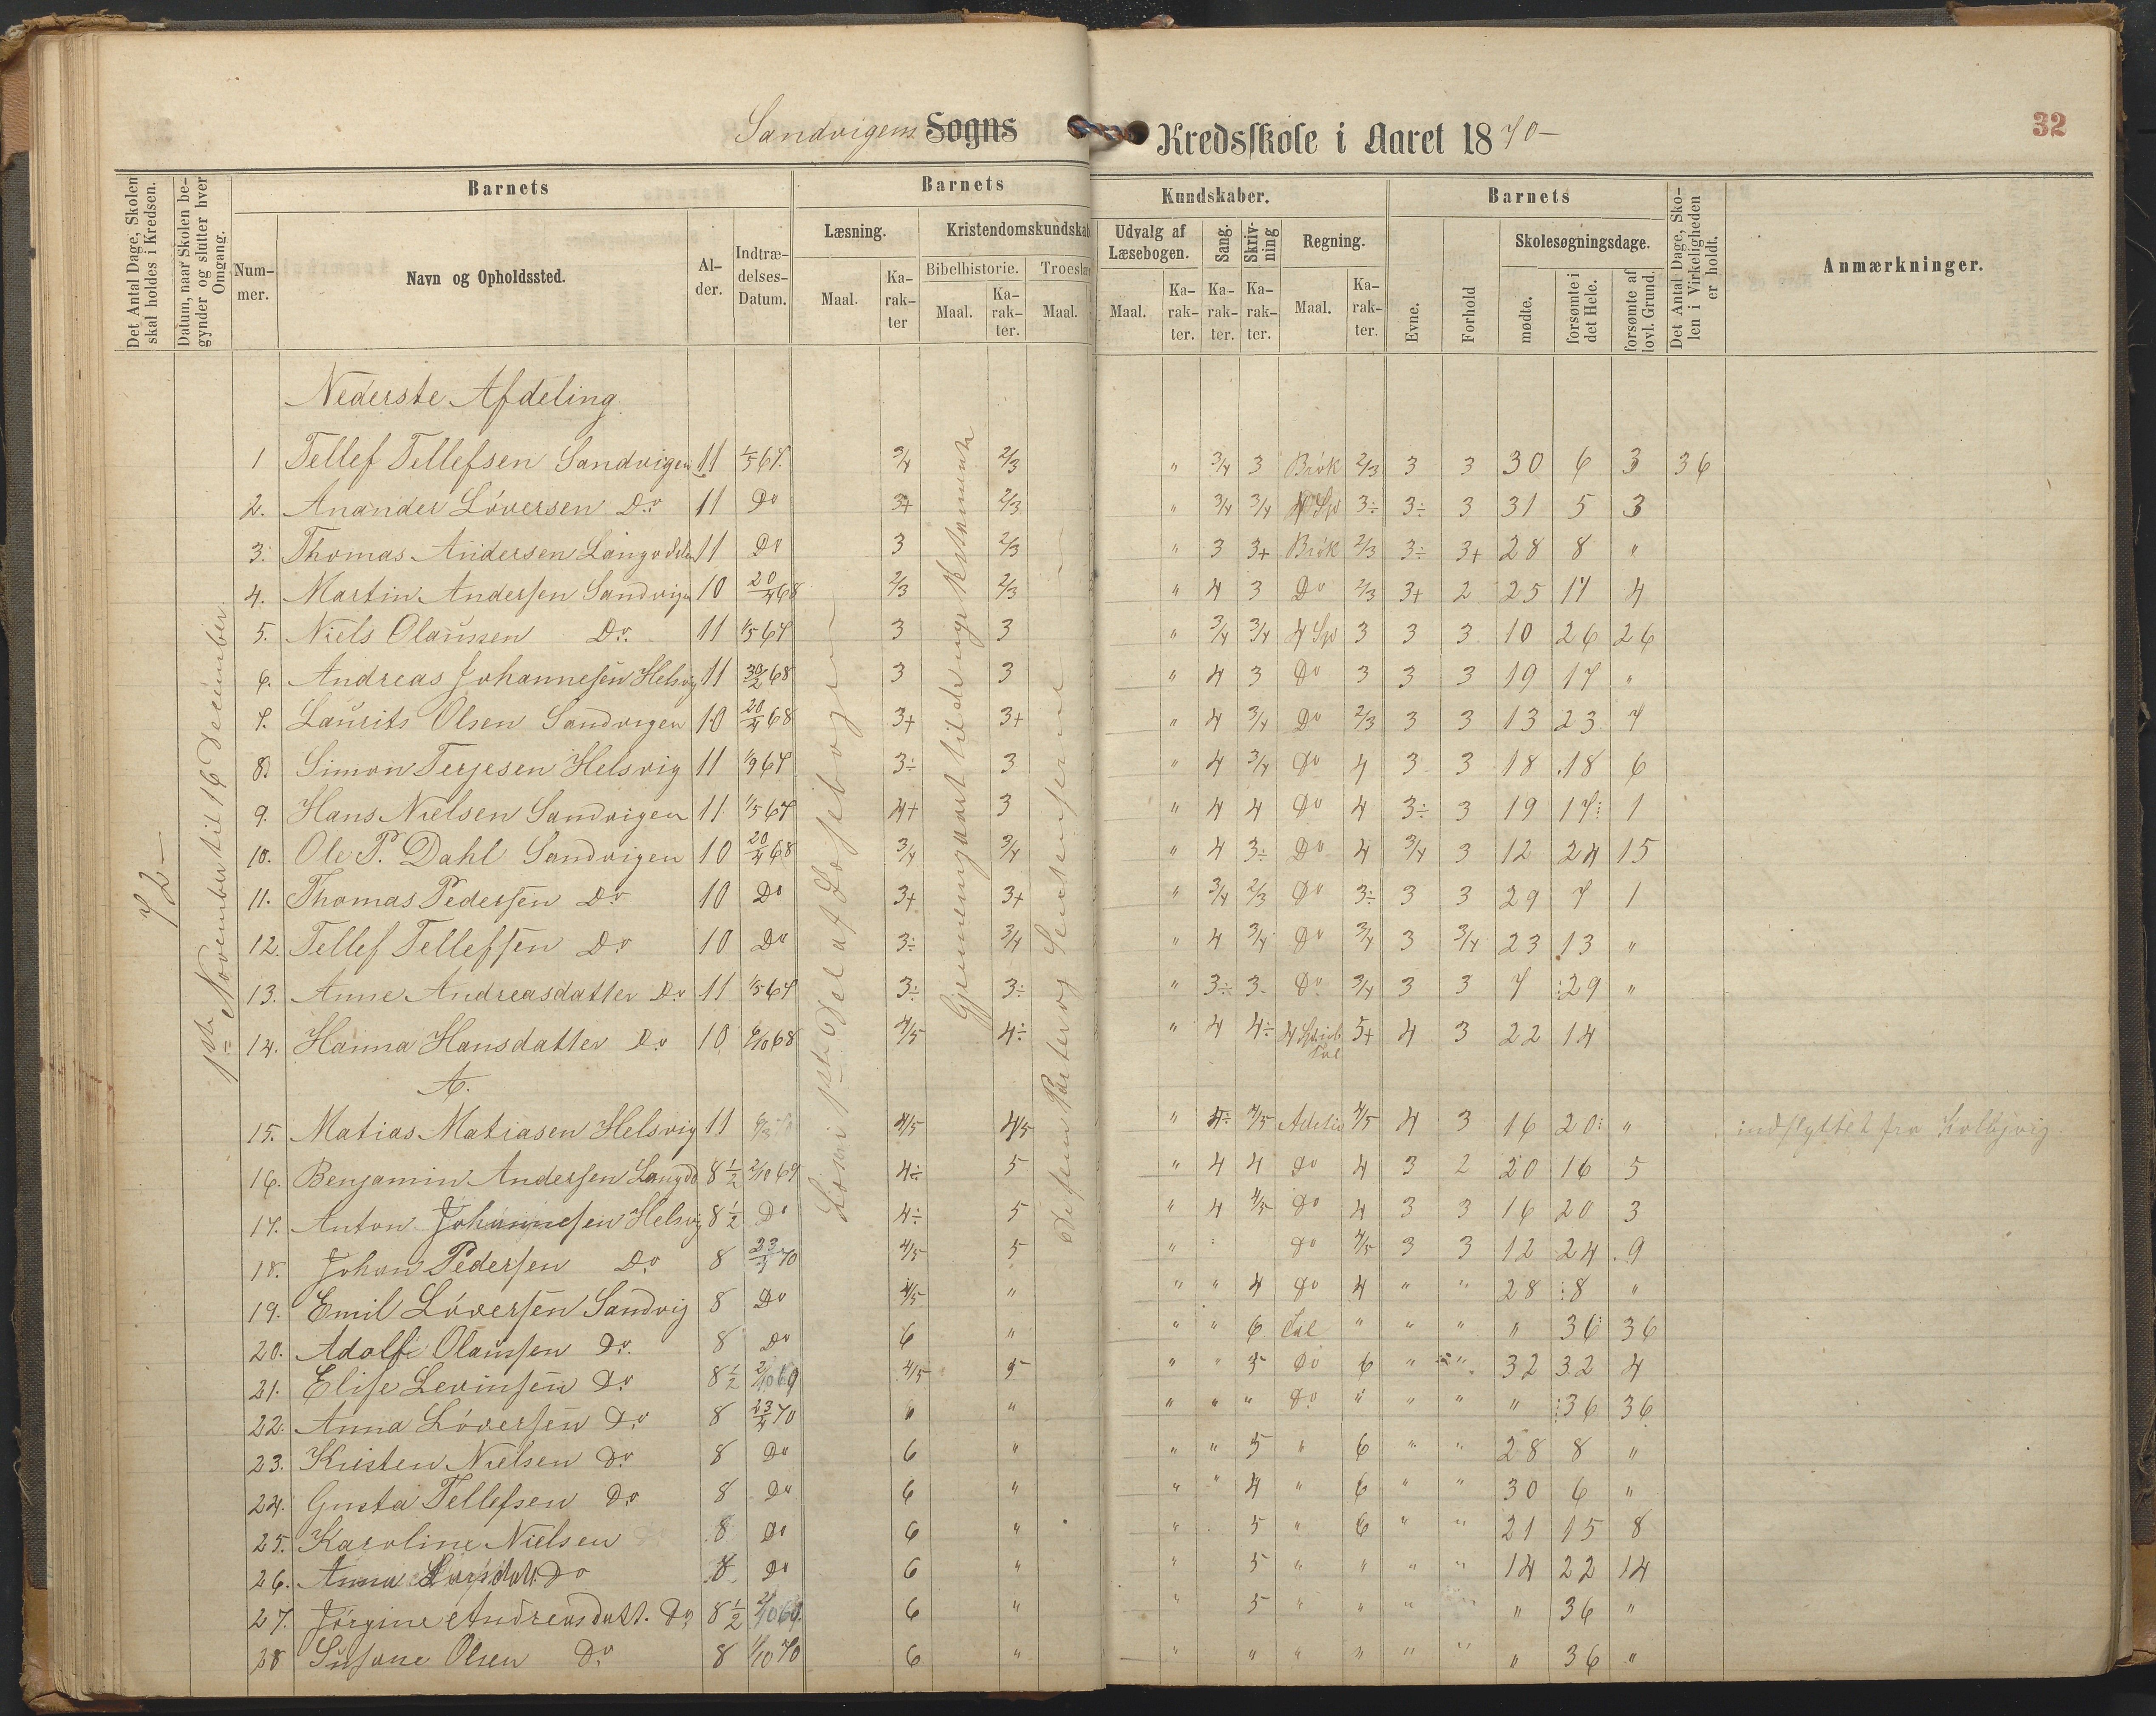 Sandvigens Sogns Kredsskole i Aaret 1870 —
32
Det Antal Dage, Skolen skal holdes i Kredsen.
Datum, naar Skolen begynder og slutter hver Omgang.
Barnets
Barnets
Kundskaber.
Barnets
Det Antal Dage, Skolen i Virkeligheden er holdt.
Anmærkninger.
Nummer.
Navn og Opholdssted.
Alder.
Indtrædelses-Datum.
Læsning.
Kristendomskundskab
Udvalg af Læsebogen.
Sang.
Skrivning
Regning.
Evne.
Forhold
Skolesøgningsdage.
Bibelhistorie.
Troeslære
Maal.
Karakter
Maal.
Karakter.
Maal.
Maal.
Karakter.
Karakter.
Karakter.
Maal.
Karakter.
mødte.
forsømte i det Hele.
forsømte af lovl. Grund.
72 —
1ste November til 16 December.
Læser 1ste Del af Læsebogen
Gjennemgaaet til det nye Testamente
Nederste Afdeling.
1 Tellef Tellefsen Sandvigen 11 1/5 67. 3/4 2/3 " 3/4 3 Brøk 2/3 3 3 30 6 3 36
2. Anander Löversen Do 11 Do 3+ 2/3 " 3/4 3/4 4 Sp 3÷ 3÷ 3 31 5 3
3. Thomas Andersen 11 Do 3 2/3 " 3 3+ Brøk 2/3 3÷ 3+ 28 8 "
4. Martin Andersen Sandvigen 10 20/4 68 2/3 2/3 " 4 3 Do 2/3 3+ 2 25 11 4
5. Niels Olaussen Do. 11 1/5 67 3 3 " 3/4 3/4 4 Sp 3 3 3 10 26 26
6. Andreas Johannesen Helsvig 11 68 3 3 " 4 3 Do 3 3 3 19 17 "
7. Laurits Olsen Sandvigen 10 20/4 68 3+ 3+ " 4 3/4 Do 2/3 3 3 13 23 7
8. Simon Terjesen Helsvig 11 1/9 67 3÷ 3 " 4 3/4 Do 4 3 3 18 18 6
9. Hans Nielsen Sandvigen 11 1/5 67 4+ 3 " 4 4 Do 4 3÷ 3 19 17 1
10. Ole P. Dahl Sandvigen 10 20/4 68 3/4 3/4 " 4 3÷ Do 4 3/4 3 12 24 15
11. Thomas Pedersen Do 10 Do 3+ 3+ " 3/4 2/3 Do 3÷ 3 3 29 7 1
12. Tellef Tellefsen Do 10 Do 3÷ 3/4 " 4 3/4 Do 3/4 3 3/4 23 13 "
13. Anne Andreasdatter Do 11 1/5 67 3÷ 3÷ " 3÷ 3 Do 3/4 3 3 7 29 "
14. Hanna Hansdatter Do 10 6/10 68 4/5 4÷ " 4 4÷ 5+ 4 3 22 14
A.
15. Matias Matiasen Helsvig 11 4/5 4/5 " 4÷ 4/5 4/5 4 3 16 20 " indflyttet fra Kolbjvig
16. Benjamin Andersen 8½ 2/10 69 4÷ 5 " 4 4 Do 4 3 2 20 16 5
17. Anton Johannesen Helsvig 8½ Do 4÷ 5 " 4 4/5 Do 4 3 3 16 20 3
18. Johan Pedersen Do. 8 23/4 70 4/5 5 " Do 4/5 3 3 12 24 9
19. Emil Löversen Sandvig 8 Do 4/5 " " " 4 Do 4 " " 28 8 "
20. Adolf Olaussen Do. 8 Do 6 " " " 6 Tal " " " " 36 36
21. Elise Levinsen Do 8½ 2/10 69 4/5 5 " " 5 Do 6 " " 32 32 4
22. Anna Löversen Do 8 23/4 70 " " " " Do " " " " 36 36
23. Kristen Nielsen Do 8 Do 6 " " " 5 " 6 " " 28 8 "
24. Gusta Tellefsen Do 8 Do 6 " " " 4 " 6 " " 30 6 "
25. Karoline Nielsen 8 Do 6 " " 5 " 6 " " 21 15 8
26. Anna Larsdatt. Do 8 Do 6 " " 5 " " " " 14 22 14
27. Jörgine Andreasdatt. Do 8½ 2/10 69. 6 " " 5 " " " " " 36 "
28 Susane Olsen Do 8 1/10 70 6 " " " " " " " " 36 "